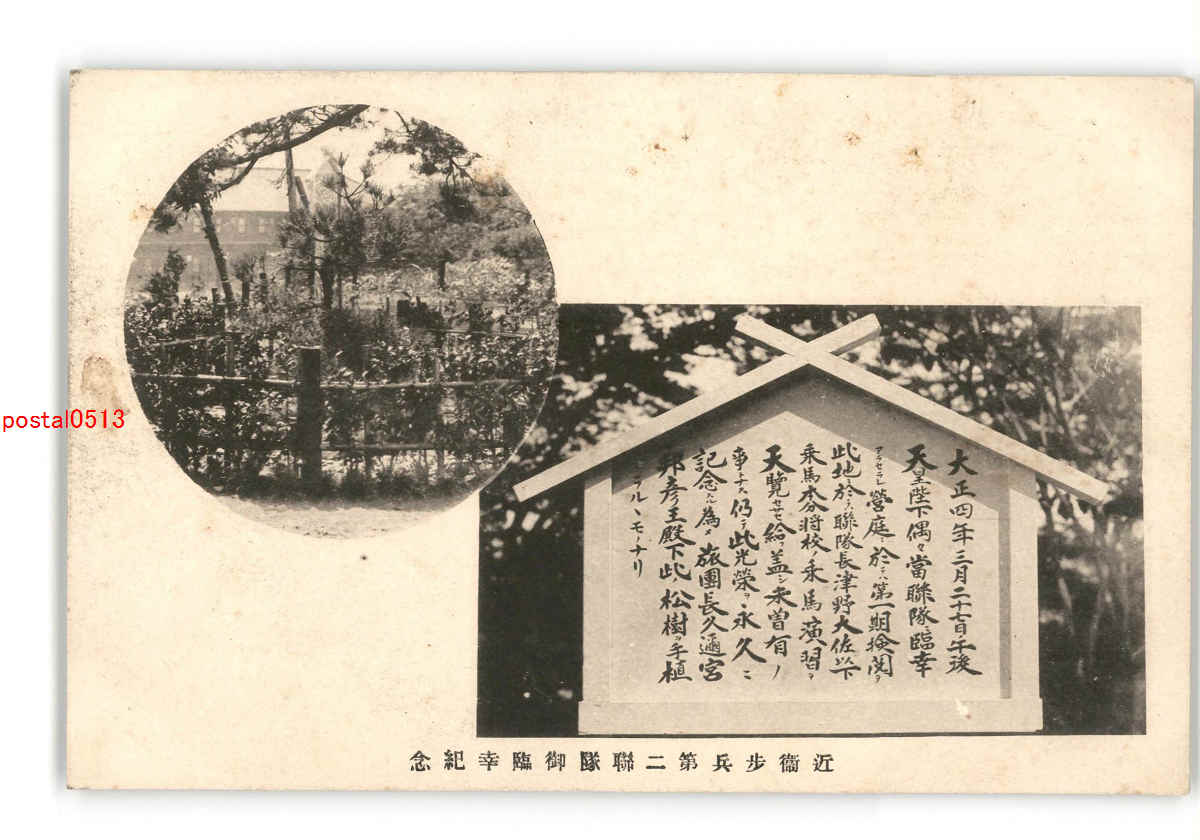 大正四年三月二十七日午後
天皇陛下偶々當聯隊臨幸
アラセラレ營庭ニ於テハ第一期検閲ヲ
此地ニ於テハ聯隊長津野大佐以下
乗馬本分将校ノ乗馬演習ヲ
天覧セサセ給フ蓋シ未曽有ノ
事ナトス仍テ此光榮ヲ永久ニ
記念スル為メ旅團長久邇宮
邦彦王殿下此松樹ヲ手植
セラルヽモノナリ
近衞歩兵第二聯隊御臨幸紀念
postal0513